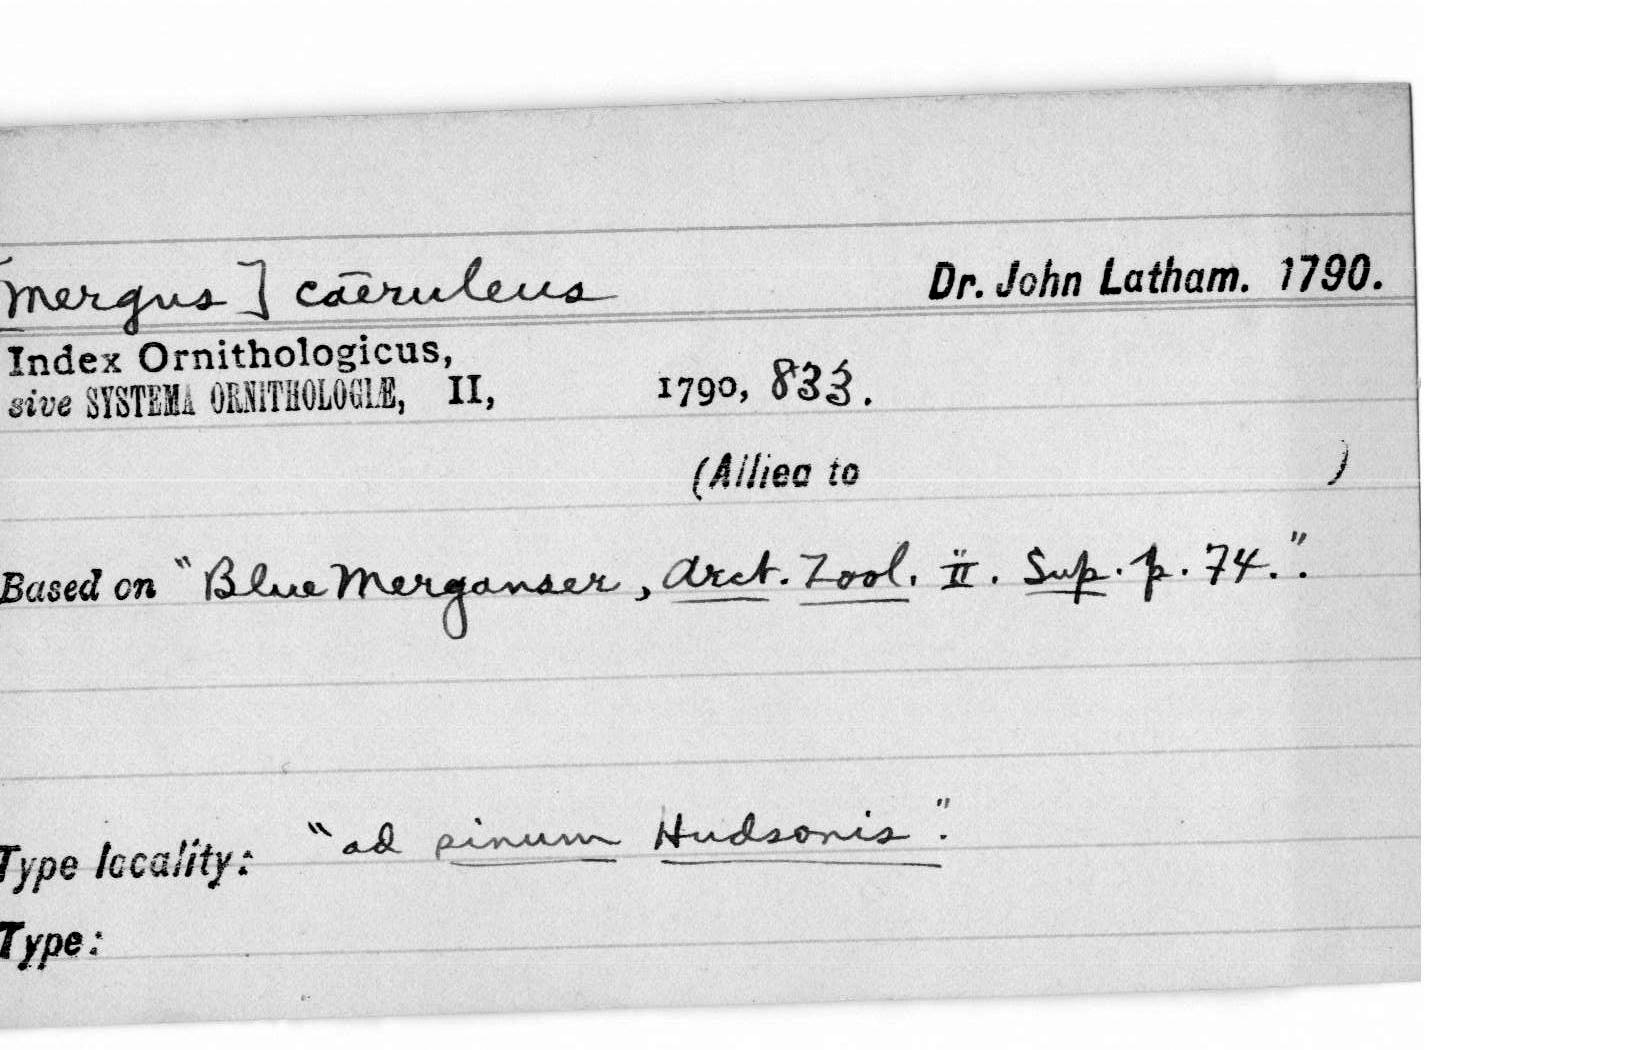 [Mergus] cāeruleus Dr. John Latham. 1790.
Index Ornithologicus,
sive SYSTEMA ORNITHOLOGIÆ, II, 1790, 833.
(Allied to )
Based on "Blue Merganser, Arct. Zool. II. Sup. p. 74.".
Type locality: "ad sinum Hudsonis".
Type: